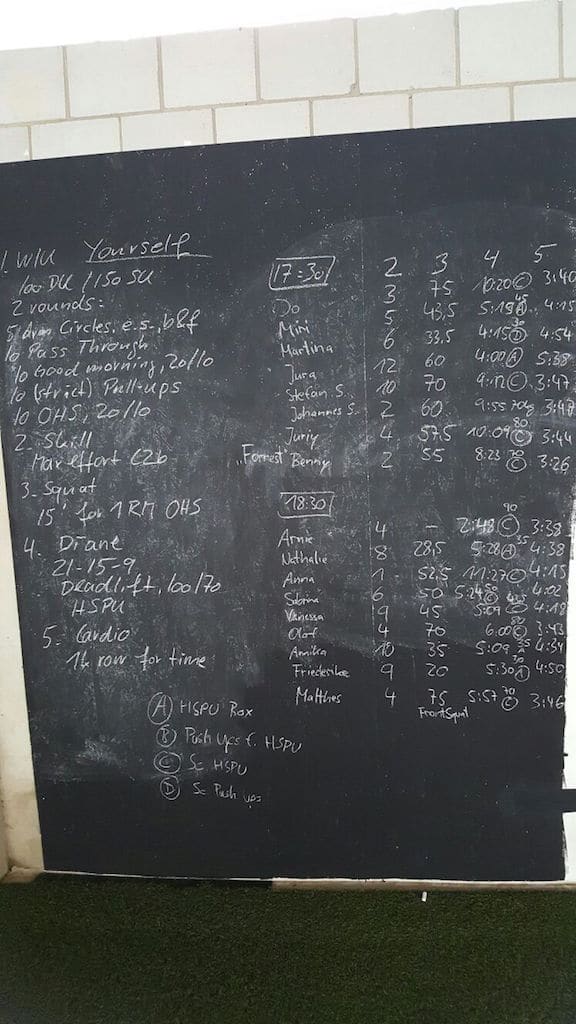 1. W/U Yourself
100 DU / 150 SU
2 rounds:
5 Arm Circles, e.s., b&f
10 Pass Through
10 Good morning, 20/10
10 (strict) Pull-ups
10 OHS, 20/10
2. Skill
Max effort C2b
3. Squat
15' for 1 RM OHS
4. Diane
21-15-9
Deadlift, 100/70
HSPU
5. Cardio
1k row for time
Ⓐ HSPU Box
Ⓑ Push ups f. HSPU
Ⓒ Sc HSPU
Ⓓ Sc Push ups
17:30 2 3 4 5
Do 3 75 10:20 Ⓒ 3:40
Mini 5 43,5 5:19 45 Ⓐ 4:15
Martina 6 33,5 4:15 30 Ⓓ 4:54
Jura 12 60 4:00 Ⓐ 5:38
Stefan S. 10 70 9:12 Ⓒ 3:47
Johannes S. 2 60 9:55 70kg 3:47
Juriy 4 57,5 10:09 80 Ⓒ 3:44
"Forrest" Benny 2 55 8:23 70 Ⓒ 3:26
18:30
Arnie 4 – 2:48 90 Ⓒ 3:38
Nathalie 8 28,5 5:28 35 Ⓐ 4:38
Anna 1 52,5 11:27 Ⓒ 4:15
Sabrina 6 50 5:24 4:02
Vanessa 9 45 5:09 Ⓒ 4:18
Olaf 4 70 6:00 80 Ⓒ 3:43
Annika 10 35 5:09 35 4:34
Friederike 9 20 5:30 30 Ⓐ 4:50
Matthes 4 75 5:57 70 Ⓒ 3:46
FrontSquat